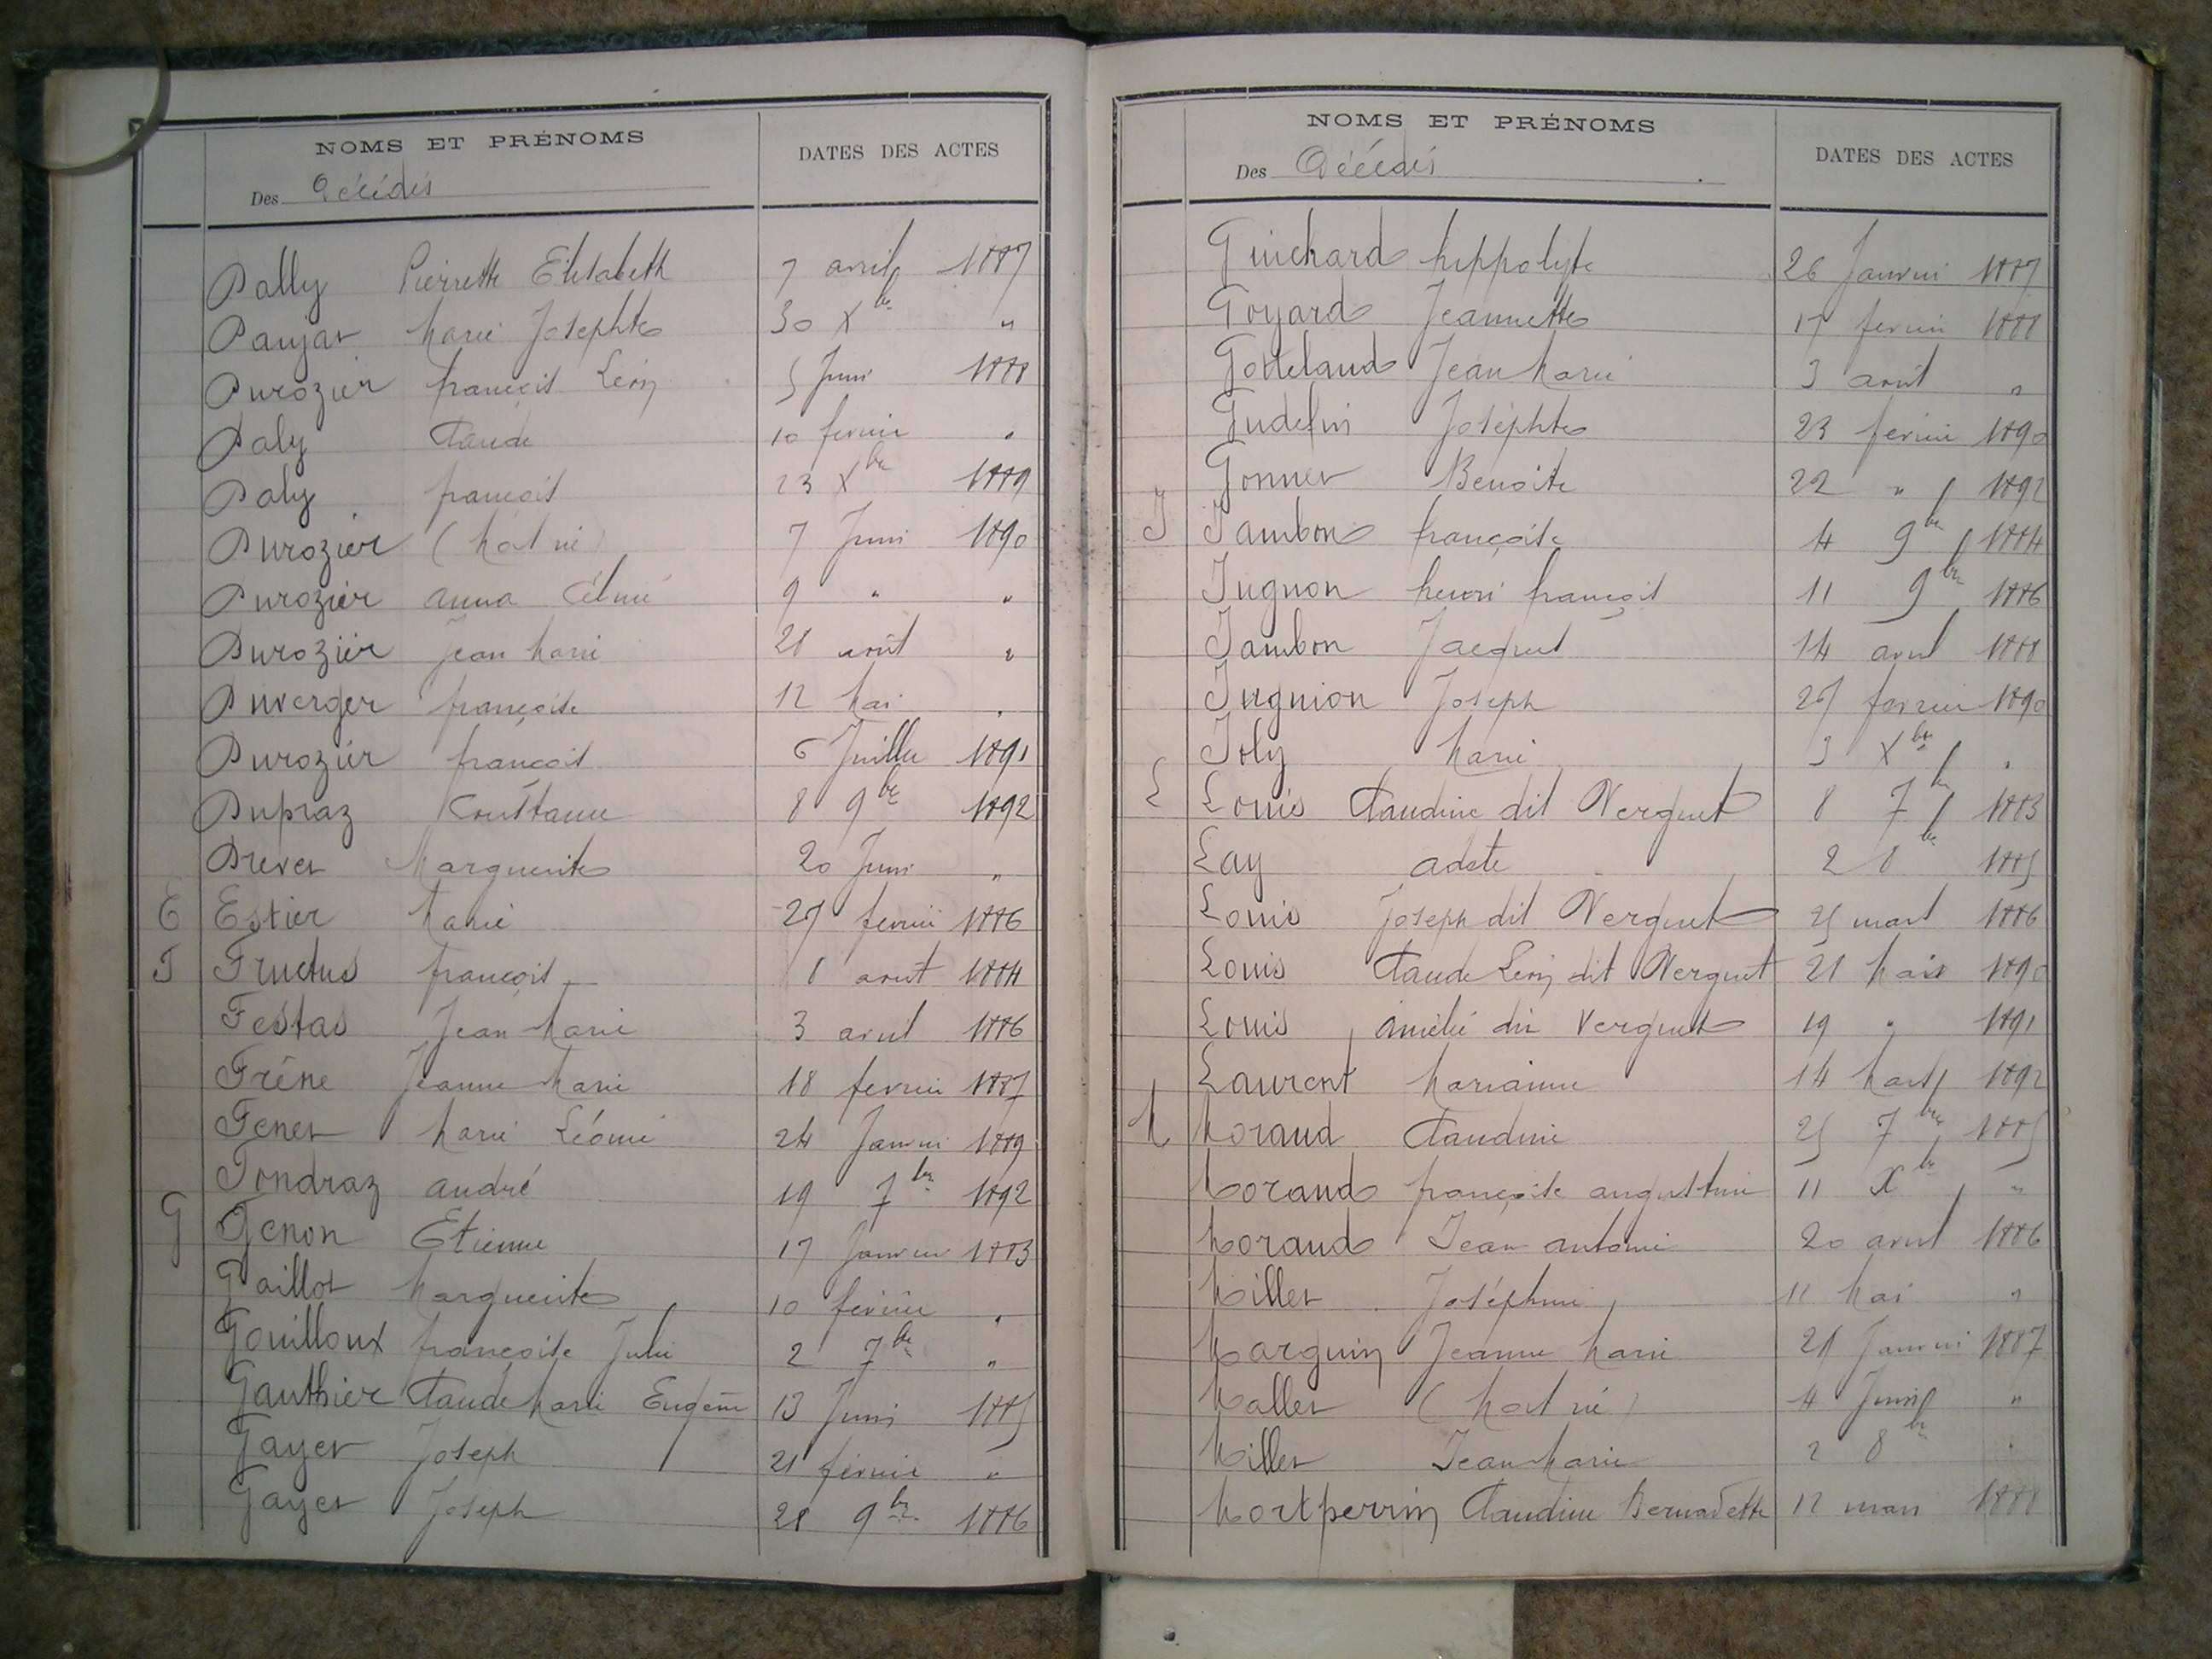 NOMS ET PRÉNOMS
DATES DES ACTES
Des Décédés
Dally Pierrette Elisabeth 7 avril 1887
Danjat Marie Josephte 30 Xbre "
Durozier françois Léon 5 Juin 1888
Daly Claude 10 fevrier "
Daly françois 23 Xbre 1889
Durozier (Mort né) 7 Juin 1890
Durozier anna 9 " "
Durozier Jean Marie 28 août "
Duverger françoise 12 Mai "
Durozier françois 6 Juillet 1891
Dupraz Constance 8 9bre 1892
Drevet Marguerite 20 Juin "
E Estier Marie 27 fevrier 1886
F Fructus françois 8 aout 1884
Festas Jean Marie 3 avril 1886
Frêne Jeanne Marie 18 fevrier 1887
Fenet Marie Léonie 24 Janvier 1889
Fondraz andré 19 7bre 1892
G Genon Etienne 17 Janvier 1883
Gaillot Marguerite 10 fevrier "
Gouilloux françoise Julie 2 7bre "
Gauthier Claude Marie Eugène 13 Juin 1885
Gayet Joseph 28 fevrier "
Gayet Joseph 28 9bre 1886
NOMS ET PRÉNOMS
DATES DES ACTES
Des Décédés
Guichard hippolyte 26 Janvier 1887
Goyard Jeannette 17 fevrier 1888
Gotteland Jean Marie 3 août "
Gudefin Joséphte 23 fevrier 1890
Gonnet Benoite 22 " 1892
J Jambon françoise 4 9bre 1884
Jugnon henri françois 11 9bre 1886
Jambon Jacques 14 avril 1888
Jugnion Joseph 27 fevrier 1890
Joly Marie 3 Xbre "
L Louis Claudine dit Verguet 8 7bre 1883
Lay 2 8bre 1885
Louis Joseph dit Verguet 25 mars 1886
Louis Claude Léon dit Verguet 28 Mars 1890
Louis amélie dit Verguet 19 " 1891
Laurent Marianne 14 Mars 1892
M Moraud Claudine 25 7bre 1885
Moraud françoise augustine 11 Xbre "
Moraud Jean antoine 20 avril 1886
Millet Joséphine 11 Mai "
Marguin Jeanne Marie 28 Janvier 1887
Mallet (Mort né) 4 Juin "
Millet Jean Marie 2 8bre "
Mortperrin Claudine Bernadette 12 mars 1888